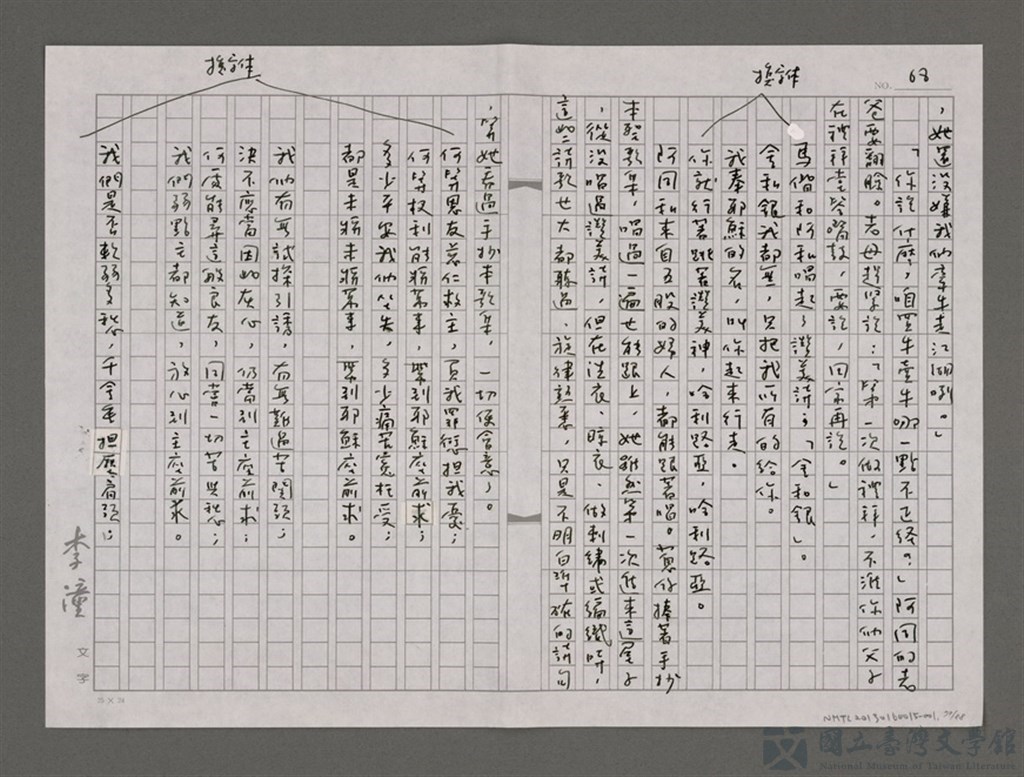 換字体
NO. 68
，她還沒嫌我們牽牛走江湖咧。」
「你說什麼，咱買牛賣牛哪一點不正經？」阿同的老
爸要翻臉。老母趕緊說：「第一次做禮拜，不准你們父子
在禮拜堂答嘴鼓，要說，回家再說。」
馬偕和阿和唱起了讚美詩：「金和銀」。
金和銀我都無，只把我所有的給你。
我奉耶穌的名，叫你起來行走。
你就行著跳著讚美神，哈利路亞，哈利路亞。
阿同和來自五股的婦人，都能跟著唱。蔥仔捧著手抄
本聖歌集，唱過一遍也能跟上，她雖然第一次進來這屋子
，從沒唱過讚美詩，但在洗衣、晾衣、做刺繡或編織時，
這些詩歌也大都聽過，旋律熟悉，只是不明白準確的詩句
換字体
，等她看過手抄本歌集，一切便會意了。
何等恩友慈仁救主，負我罪愆担我憂；
何等权利能將萬事，帶到耶穌座前求；
多少平安我們坐失，多少痛苦冤枉受；
都是未將未將萬事，帶到耶穌座前求。
我們有無試探引誘，有無難過苦關頭；
決不應當因此灰心，仍當到主座前求；
何處能尋這般良友，同當一切苦與愁；
我們弱點主都知道，放心到主座前求。
我們是否軟弱多愁，千今重担壓肩頭；
李潼
文字
25 X 24
NMTL20130160015-001, 70/
國立臺灣文學館
National Museum of Taiwan Literature